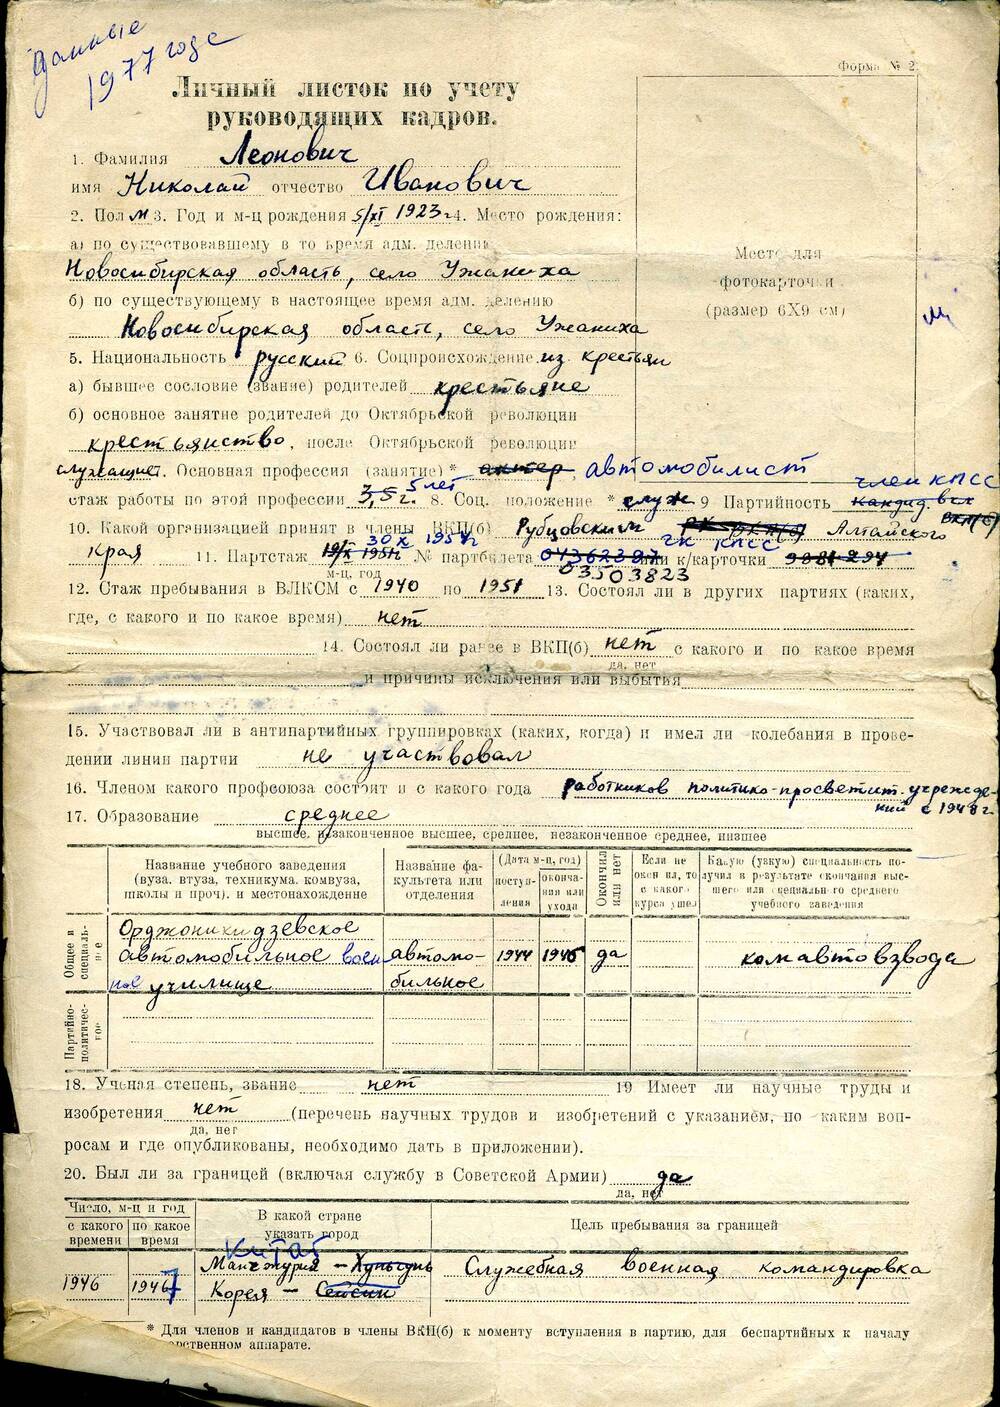 Данные
1977 года
Форма № 2
Личный листок по учету
руководящих кадров.
1. Фамилия Леонович
имя Николай отчество Иванович
2. Пол м 3. Год и м-ц рождения 5/XI 1923 г. 4. Место рождения:
а) по существовавшему в то время адм. делению
Новосибирская область, село Ужаниха
б) по существующему в настоящее время адм. делению
Новосибирская область, село Ужаниха
Место для
фотокарточки
(размер 6X9 см)
5. Национальность русский 6. Соцпроисхождение из крестьян
а) бывшее сословие (звание) родителей крестьяне
б) основное занятие родителей до Октябрьской революции
крестьянство, после Октябрьской революции
служащие. Основная профессия (занятие) * актер автомобилист
стаж работы по этой профессии 3,5 г. 5 лет 8. Соц. положение * служ. 9 Партийность Кандид. ВКП(б) член КПСС
10. Какой организацией принят в члены ВКП(б) Рубцовским РК ВКП(б) ГК КПСС Алтайского
края 11. Партстаж 30 X 1954 г № партбилета 04362387 03503823 или к/карточки
м-ц, год
12. Стаж пребывания в ВЛКСМ с 1940 по 1951 13. Состоял ли в других партиях (каких,
где, с какого и по какое время) нет
14. Состоял ли ранее в ВКП(б) нет с какого и по какое время
да, нет
и причины исключения или выбытия
15. Участвовал ли в антипартийных группировках (каких, когда) и имел ли колебания в прове-
дении линии партии не участвовал
16. Членом какого профсоюза состоит и с какого года работников политико-просветит. учрежде-
ний с 1948 г.
17. Образование среднее
высшее, незаконченное высшее, среднее, незаконченное среднее, низшее
Название учебного заведения
(вуза, втуза, техникума, комвуза,
школы и проч). и местонахождение
Название фа-
культета или
отделения
(Дата м-ц, год)
поступ-
ления
оконча-
ния или
ухода
Окончил
или нет
Если не
окончил, то
с какого
курса ушел
Какую (узкую) специальность по-
лучил в результате окончания выс-
шего или специального среднего
учебного заведения
Общее и
специаль-
ное
Орджоникидзевское
автомобильное воен-
ное училище
автомо-
бильное
1944 1945 да комавтовзвода
Партийно-
политичес-
кое
18. Ученая степень, звание нет 19 Имеет ли научные труды и
изобретения нет (перечень научных трудов и изобретений с указанием, по каким воп-
да, нет
росам и где опубликованы, необходимо дать в приложении).
20. Был ли за границей (включая службу в Советской Армии) да
да, нет
Число, м-ц и год
с какого
времени
по какое
время
В какой стране
указать город
Цель пребывания за границей
Китай
Манчжурия — Хуньчунь
1946 1947 Корея — Сейсин
Служебная военная командировка
* Для членов и кандидатов в члены ВКП(б) к моменту вступления в партию, для беспартийных к началу
рственном аппарате.